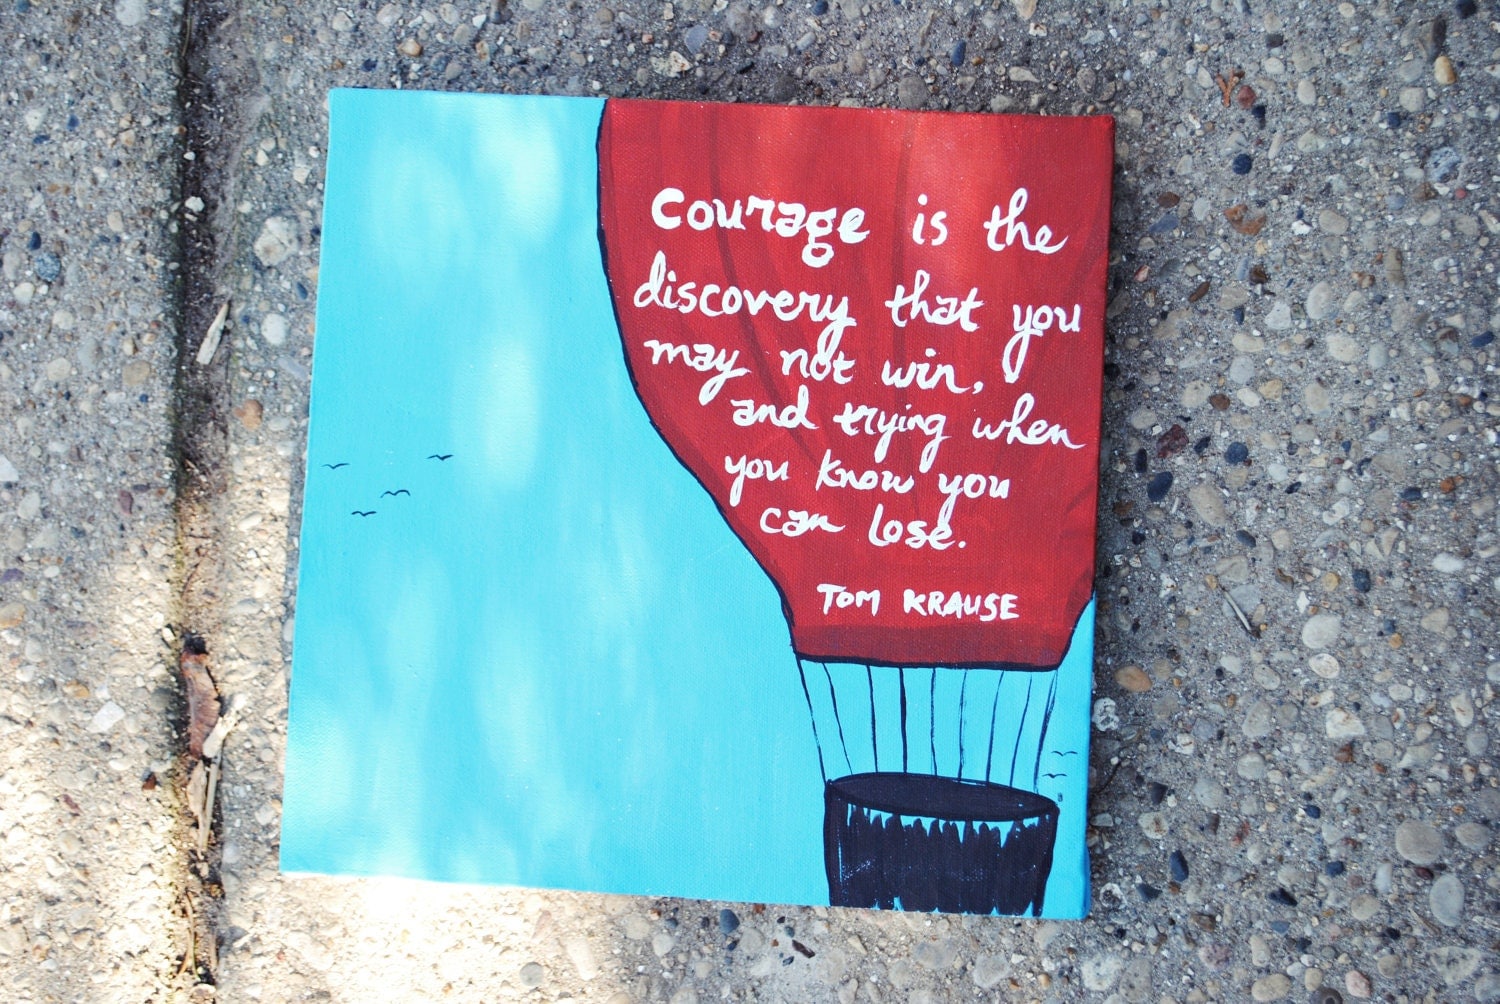 Courage is the
discovery that you
may not win,
and trying when
you know you
can lose.
TOM KRAUSE